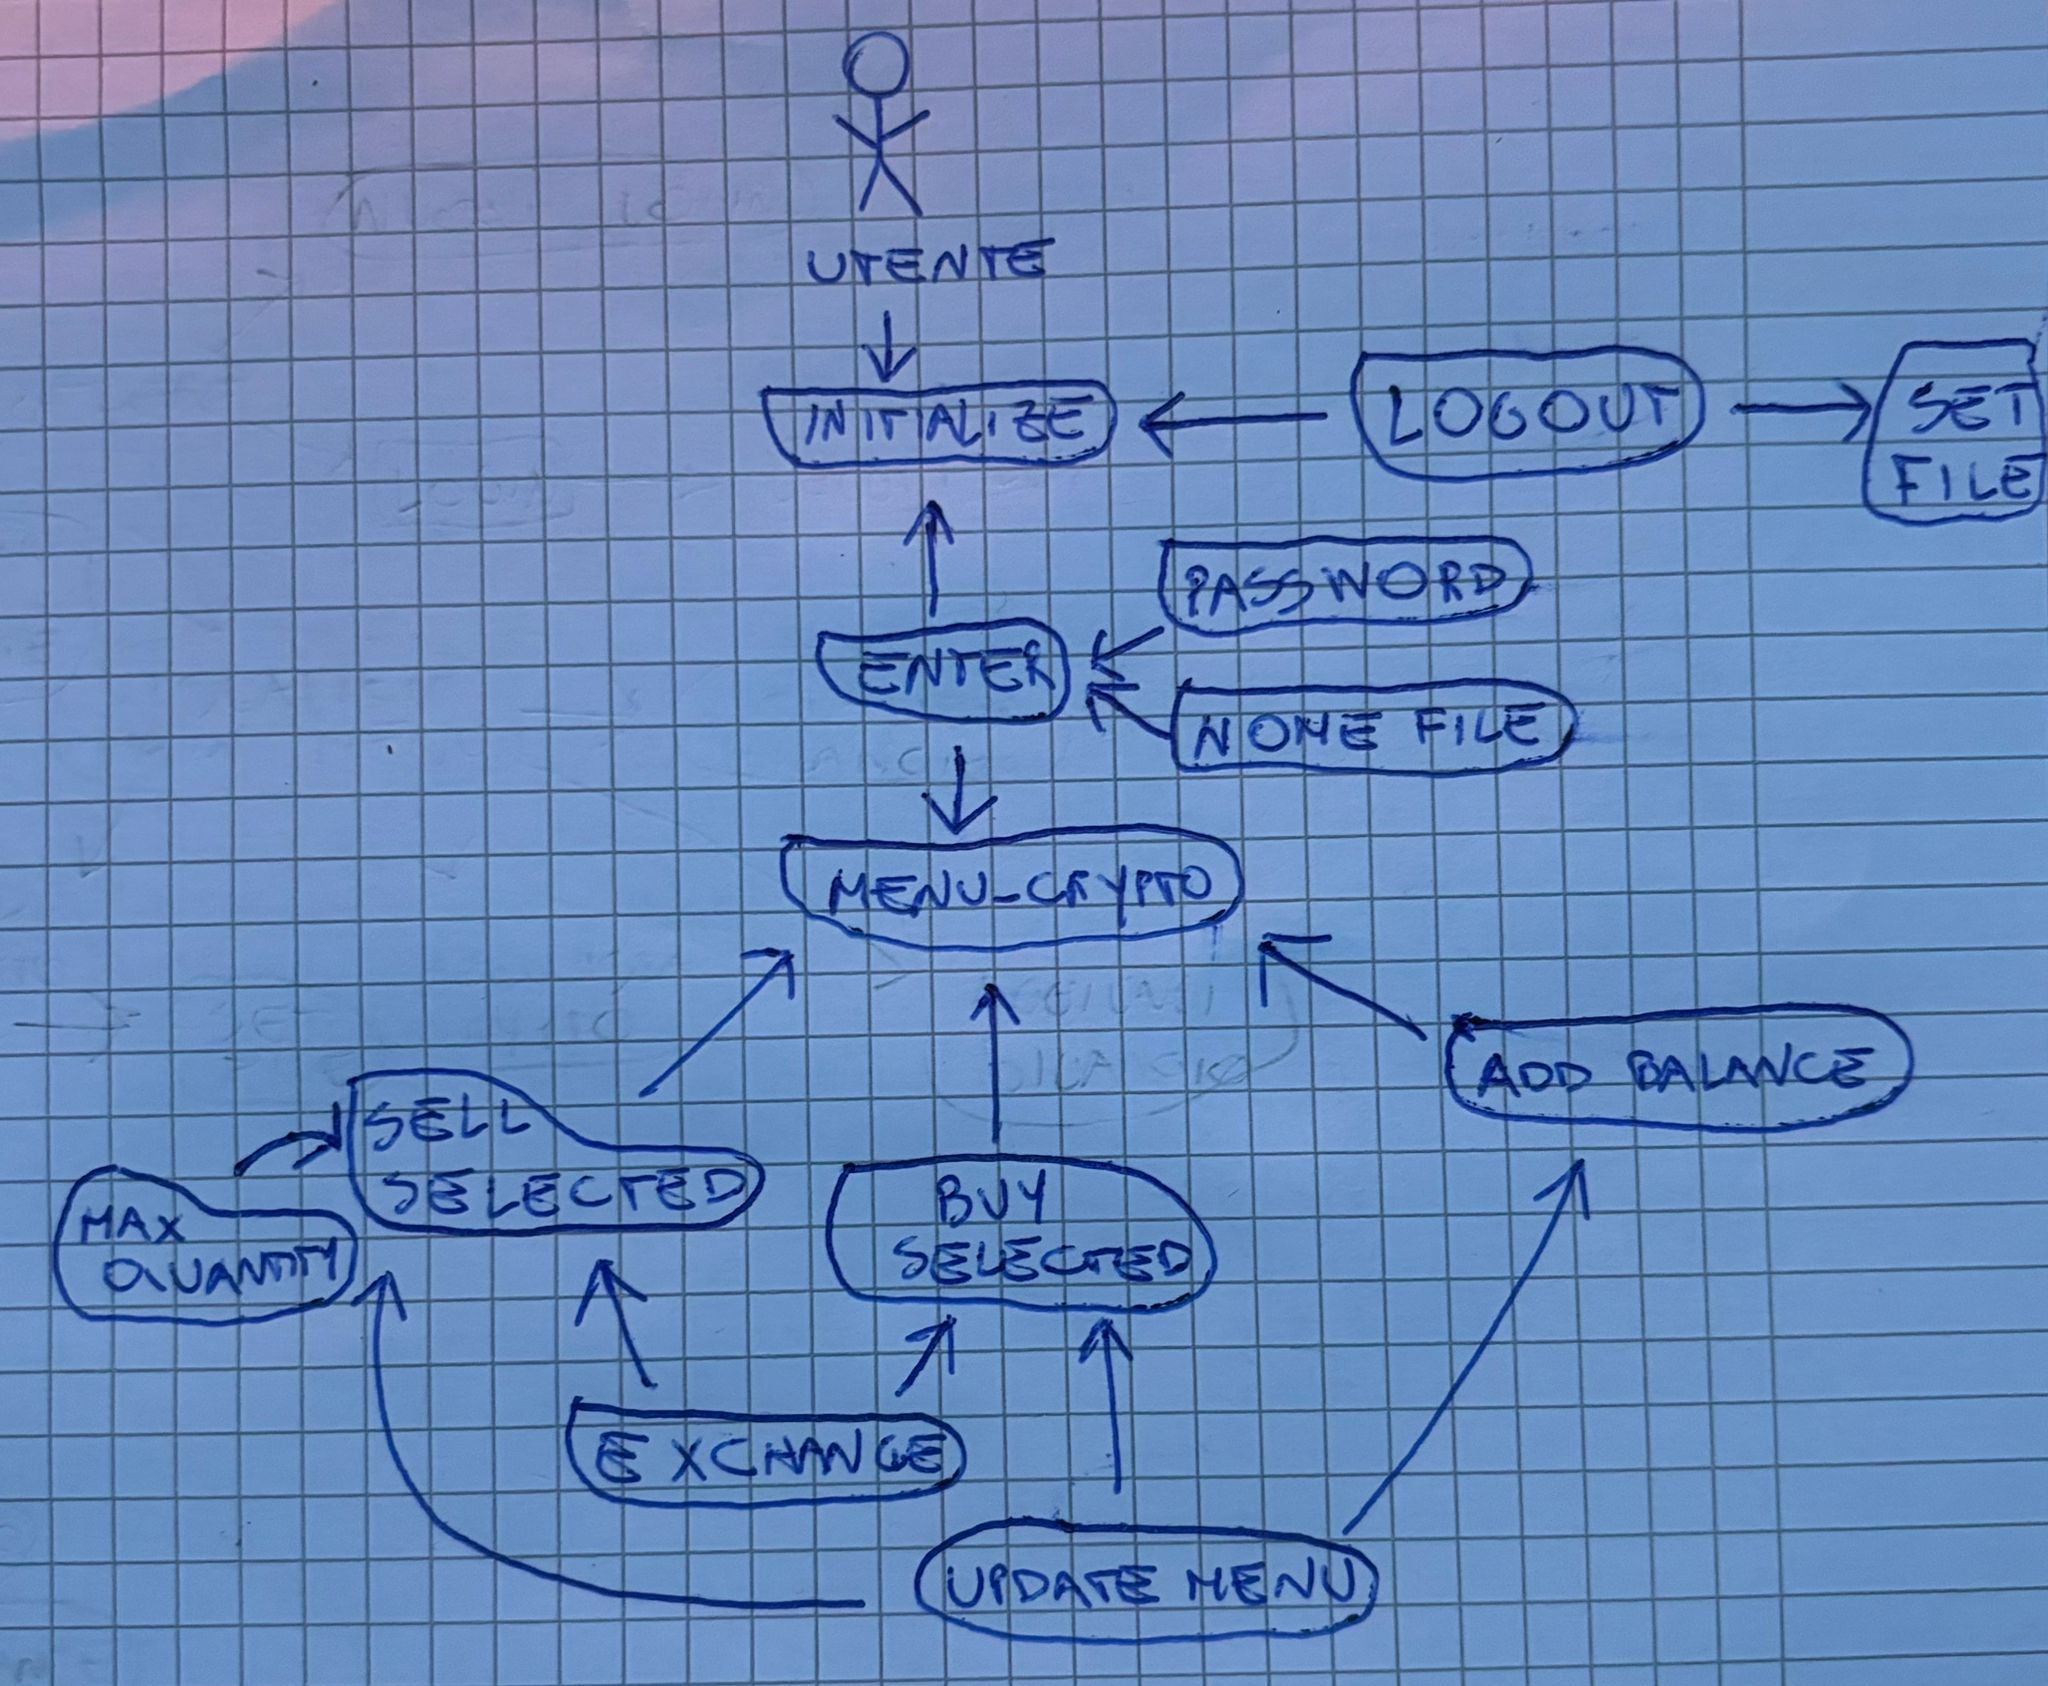 UTENTE
INITIALIZE
LOGOUT
SET
FILE
PASSWORD
ENTER
NOME FILE
MENU_CRYPTO
ADD BALANCE
SELL
SELECTED
MAX
QUANTITY
BUY
SELECTED
EXCHANGE
UPDATE MENU